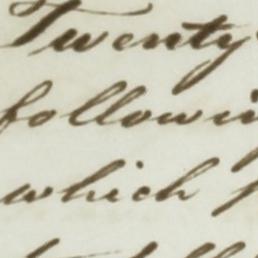 Twenty
followi
which